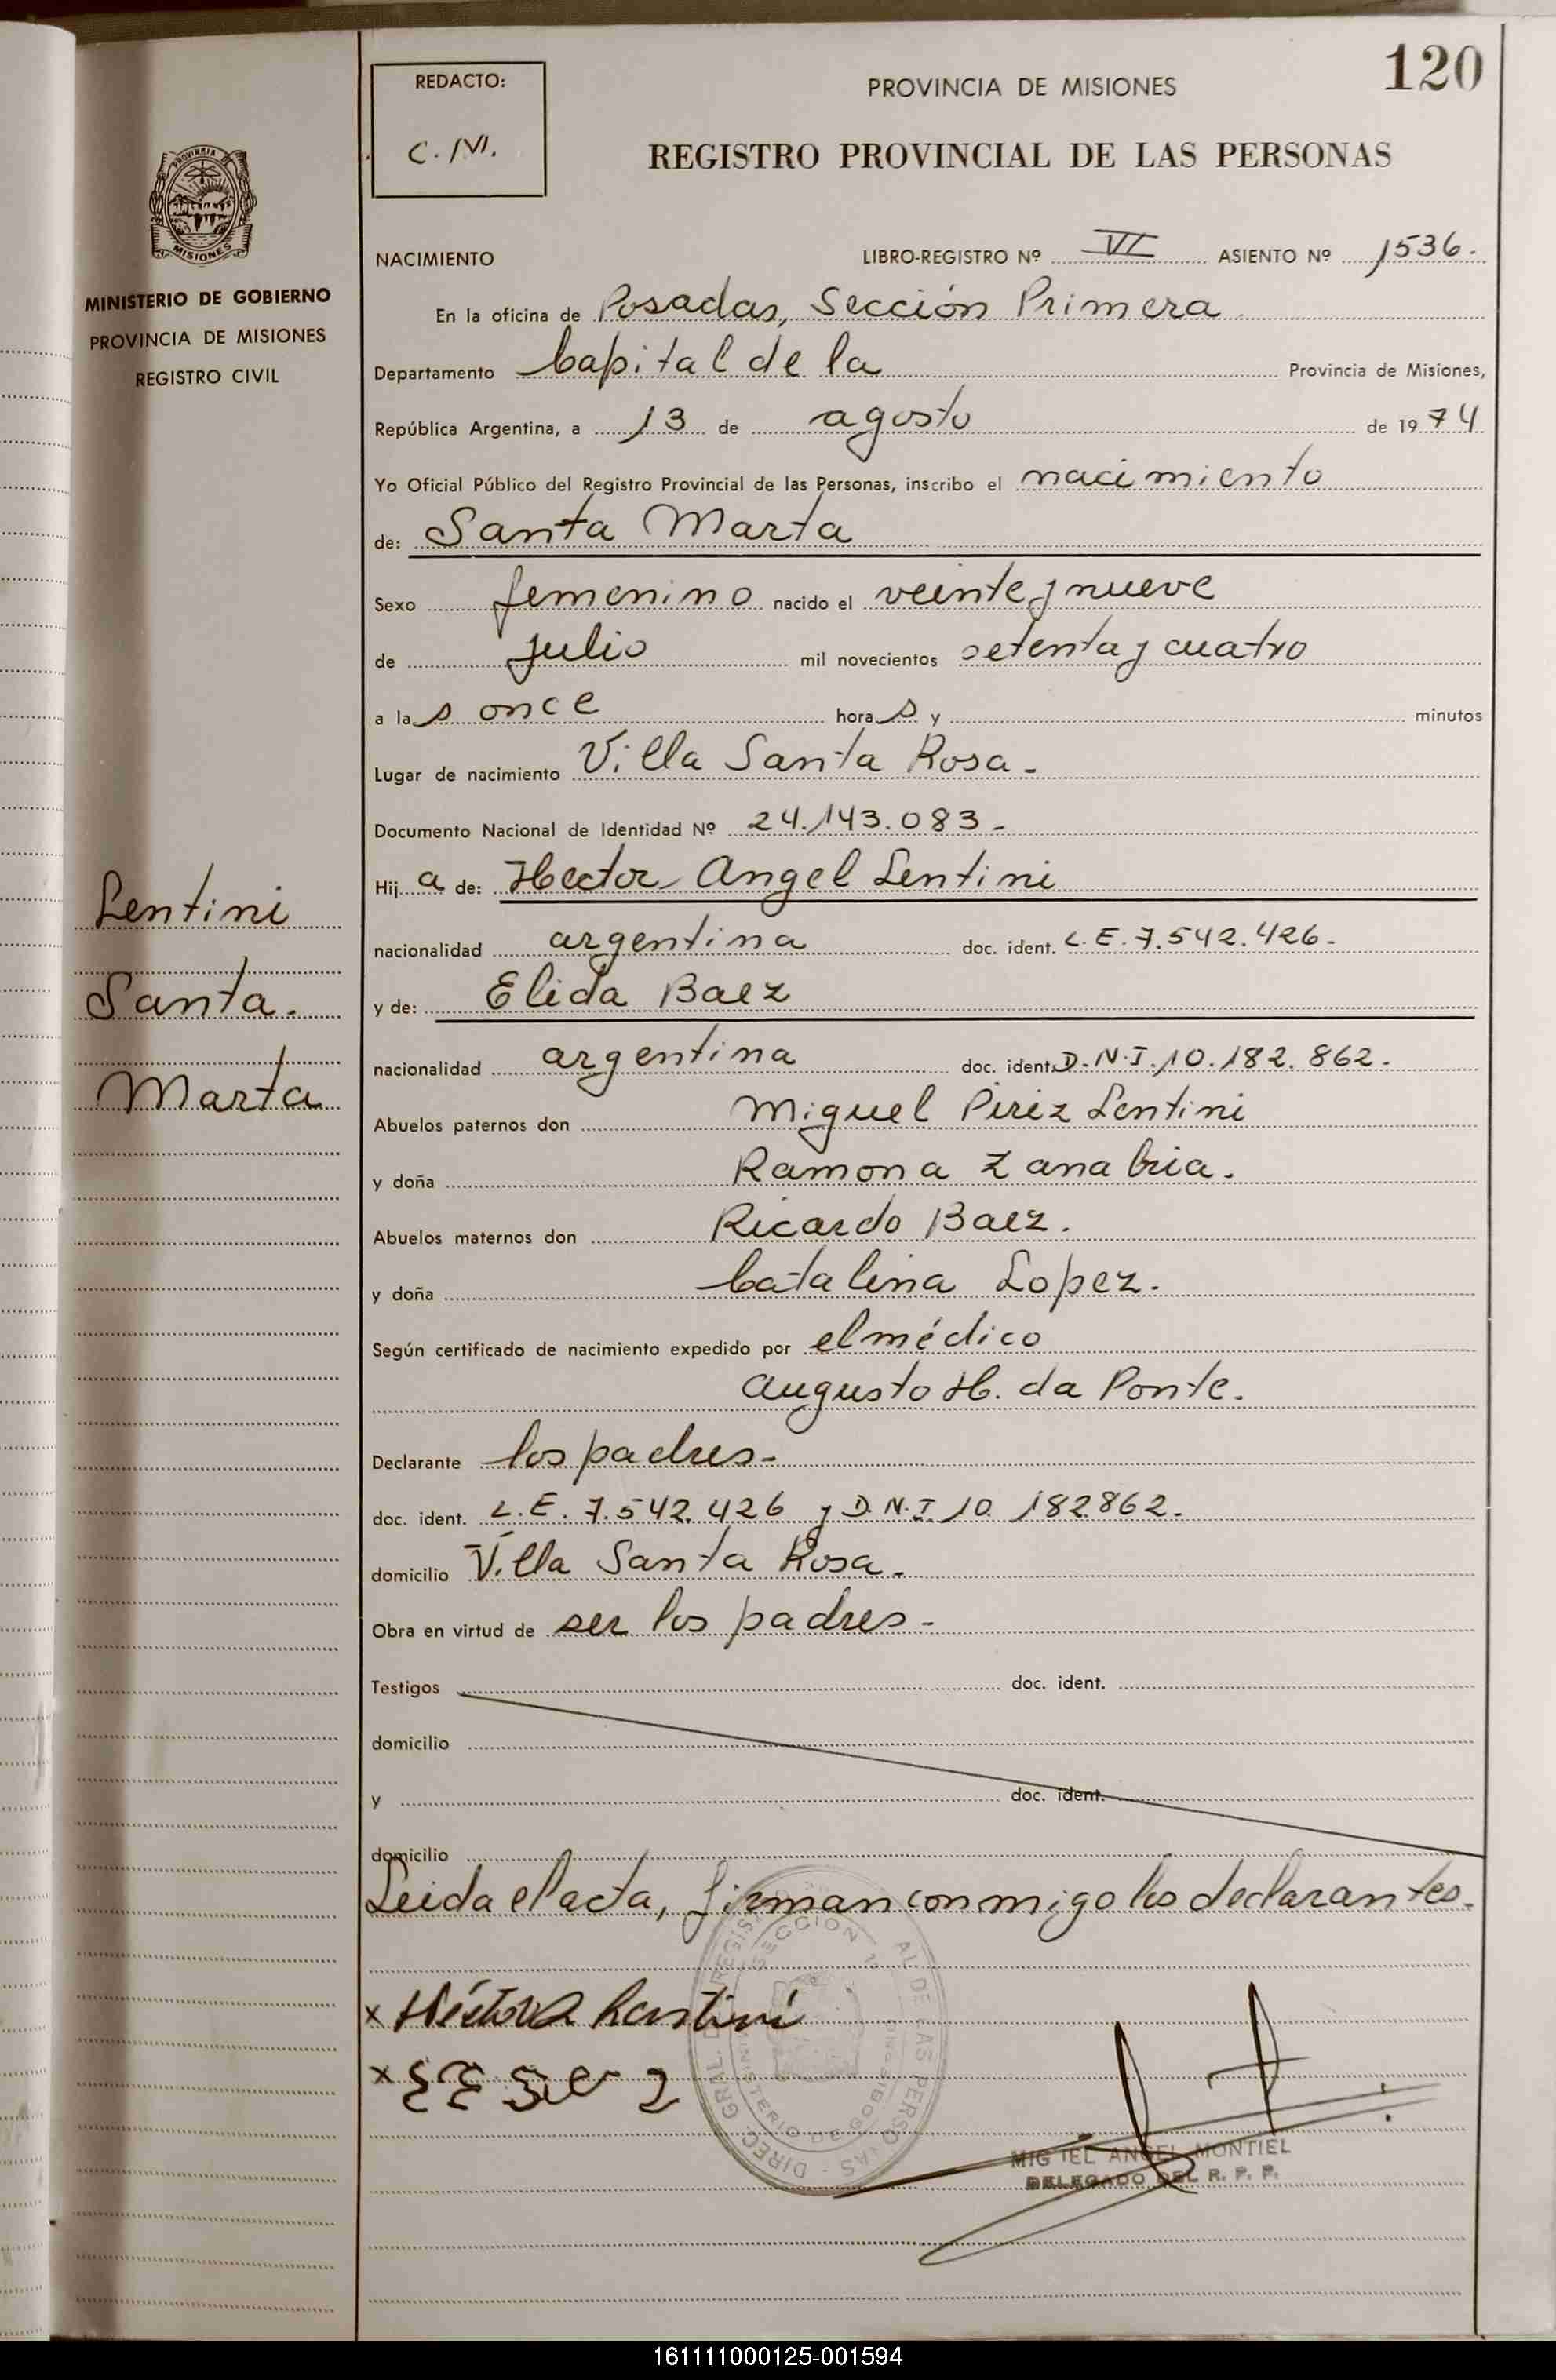 120
REDACTO:
C. M.
PROVINCIA DE MISIONES
REGISTRO PROVINCIAL DE LAS PERSONAS
PROVINCIA DE
MISIONES
MINISTERIO DE GOBIERNO
PROVINCIA DE MISIONES
REGISTRO CIVIL
Lentini
Santa.
Marta
NACIMIENTO LIBRO-REGISTRO Nº VI ASIENTO Nº 1536.
En la oficina de Posadas, Sección Primera
Departamento Capital de la Provincia de Misiones,
República Argentina, a 13 de agosto de 1974
Yo Oficial Público del Registro Provincial de las Personas, inscribo el nacimiento
de: Santa Marta
Sexo femenino nacido el veinte y nueve
de julio mil novecientos setenta y cuatro
a las once horas y minutos
Lugar de nacimiento Villa Santa Rosa -
Documento Nacional de Identidad Nº 24.143.083 -
Hija de: Hector Angel Lentini
nacionalidad argentina doc. ident. L.E. 7.542.426 -
y de: Elida Baez
nacionalidad argentina doc. ident. D.N.I. 10.182.862 -
Abuelos paternos don Miguel Piriz Lentini
y doña Ramona Zanabria.
Abuelos maternos don Ricardo Baez.
y doña Catalina Lopez.
Según certificado de nacimiento expedido por el médico
Augusto H. da Ponte.
Declarante los padres -
doc. ident. L.E. 7.542.426 y D.N.I. 10.182862 -
domicilio Villa Santa Rosa -
Obra en virtud de ser los padres -
Testigos doc. ident.
domicilio
y doc. ident.
domicilio
Leida el acta, firman conmigo los declarantes.
x Héctor A Lentini
x
MIGUEL ANGEL MONTIEL
DELEGADO DEL R. P. P.
161111000125-001594